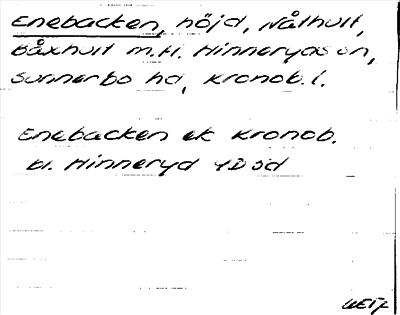 Enebacken, höjd, Nålhult,
Båxhult m.fl. Hinneryds sn,
Sunnerbo hd, Kronob. l.
Enebacken ek Kronob.
bl. Hinneryd 4D5d